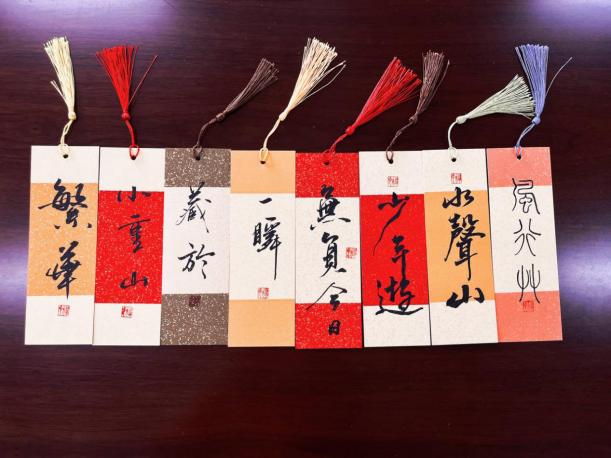 繁華
小重山
藏於
一瞬
無負今日
少年遊
水聲山
風行艸